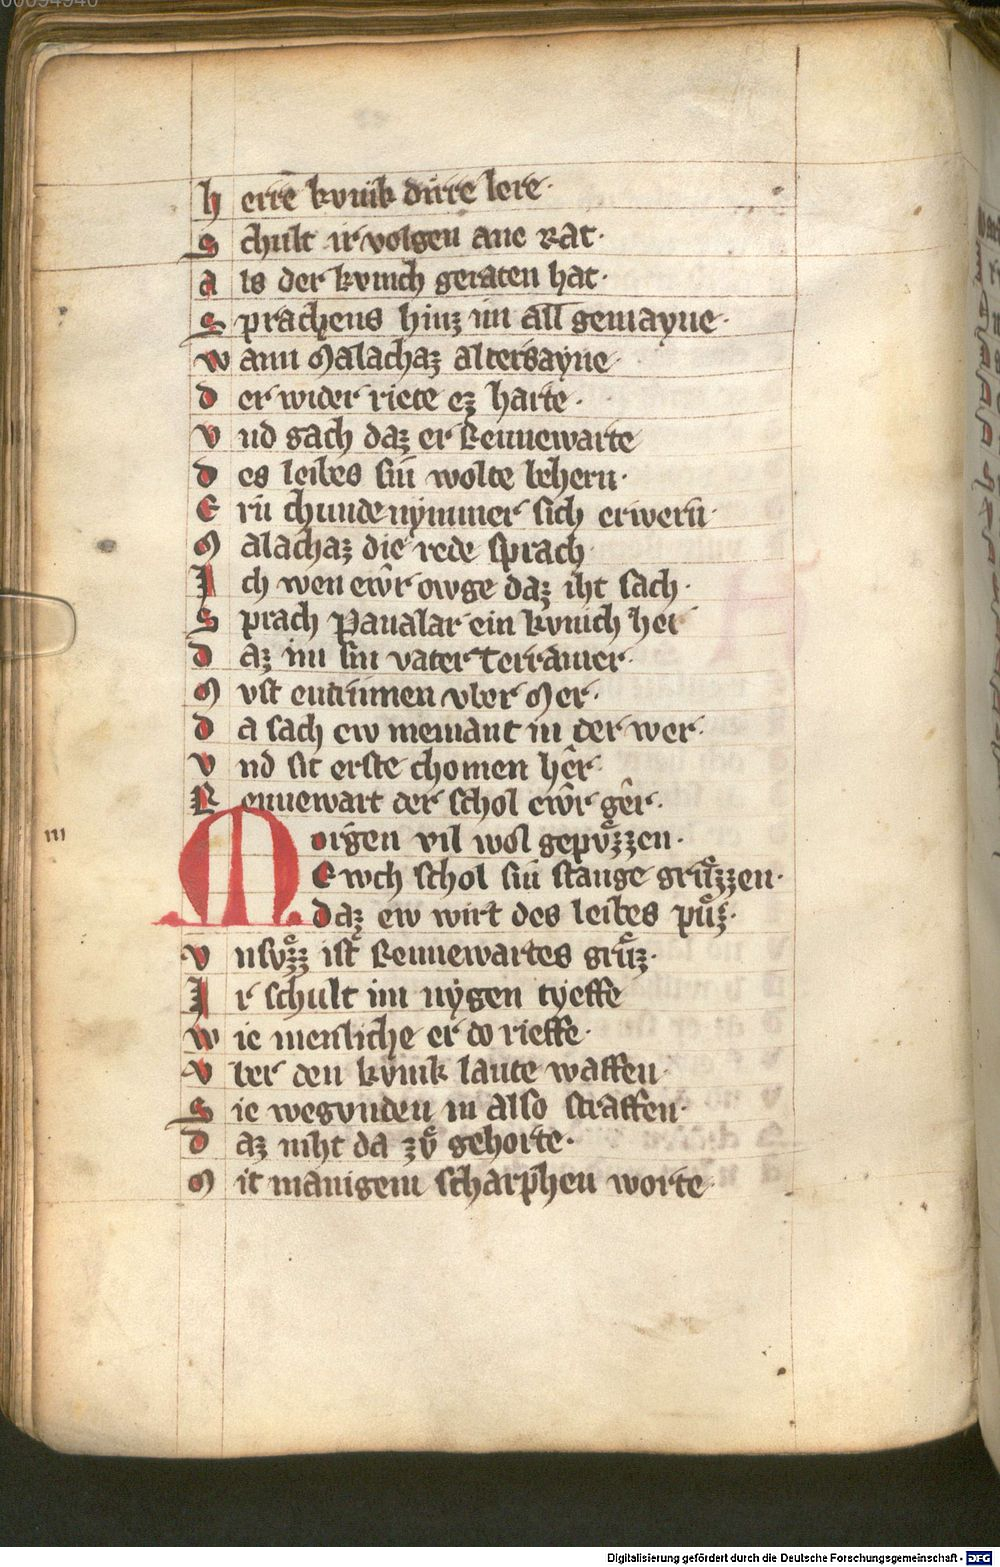 00094940
h errē kvnik dirre lere·
S chult ir volgen ane Rat·
A ls der kvnich geraten hat·
S prachens hinz im all gemayne·
W ann Malachaz altersayne·
D er wider riete ez harte·
V nd sach daz er Rennewarte
D es leibes sin wolte behern·
E rn chunde nymmer sich erwern·
M alachaz die rede sprach·
I ch wen ewr owge daz iht sach·
S prach Paualar ein kvnich her
D az im sin vater Terramer·
M vst entrinnen vber Mer·
D a sach ew niemant in der wer·
V nd sit erste chomen her·
R ennewart der schol ewr ger·
M orgen vil wol gepvͦzzen·
E wch schol sin stange grvͦzzen·
daz ew wirt des leibes puͦz·
V nsvͦzz ist Rennewartes gruͦz·
I r schult im nygen tyeffe
W ie menliche er do rieffe·
V ber den kvnik laute waffen·
S ie wegvnden in also straffen·
D az niht da zvͦ gehorte·
M it manigem scharphen worte·
m
Digitalisierung gefördert durch die Deutsche Forschungsgemeinschaft - DFG